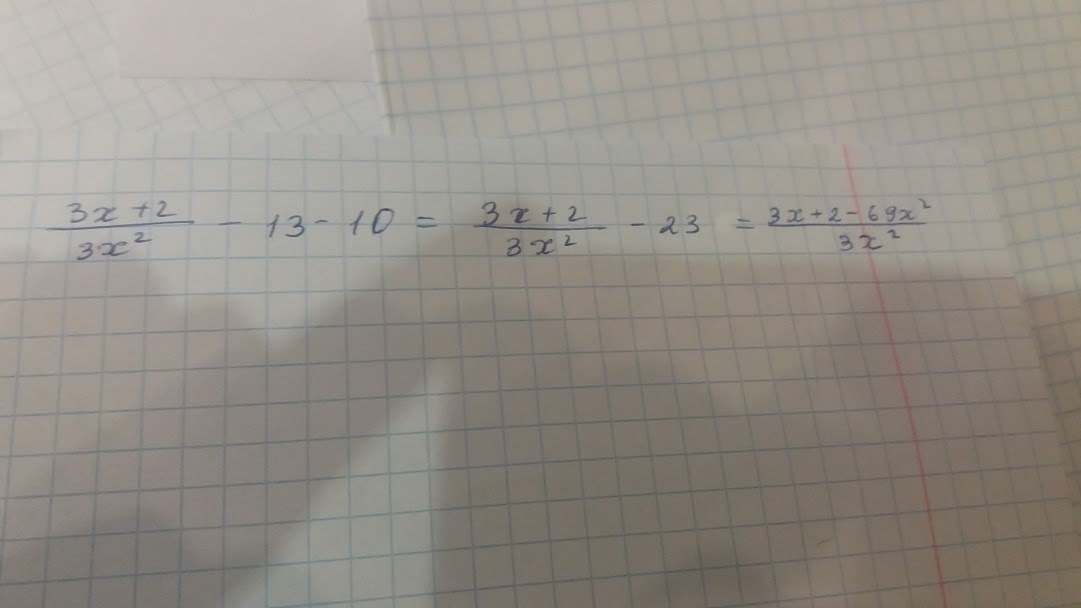 (3x+2)/(3x²) - 13 - 10 = (3x+2)/(3x²) - 23 = (3x+2-69x²)/(3x²)